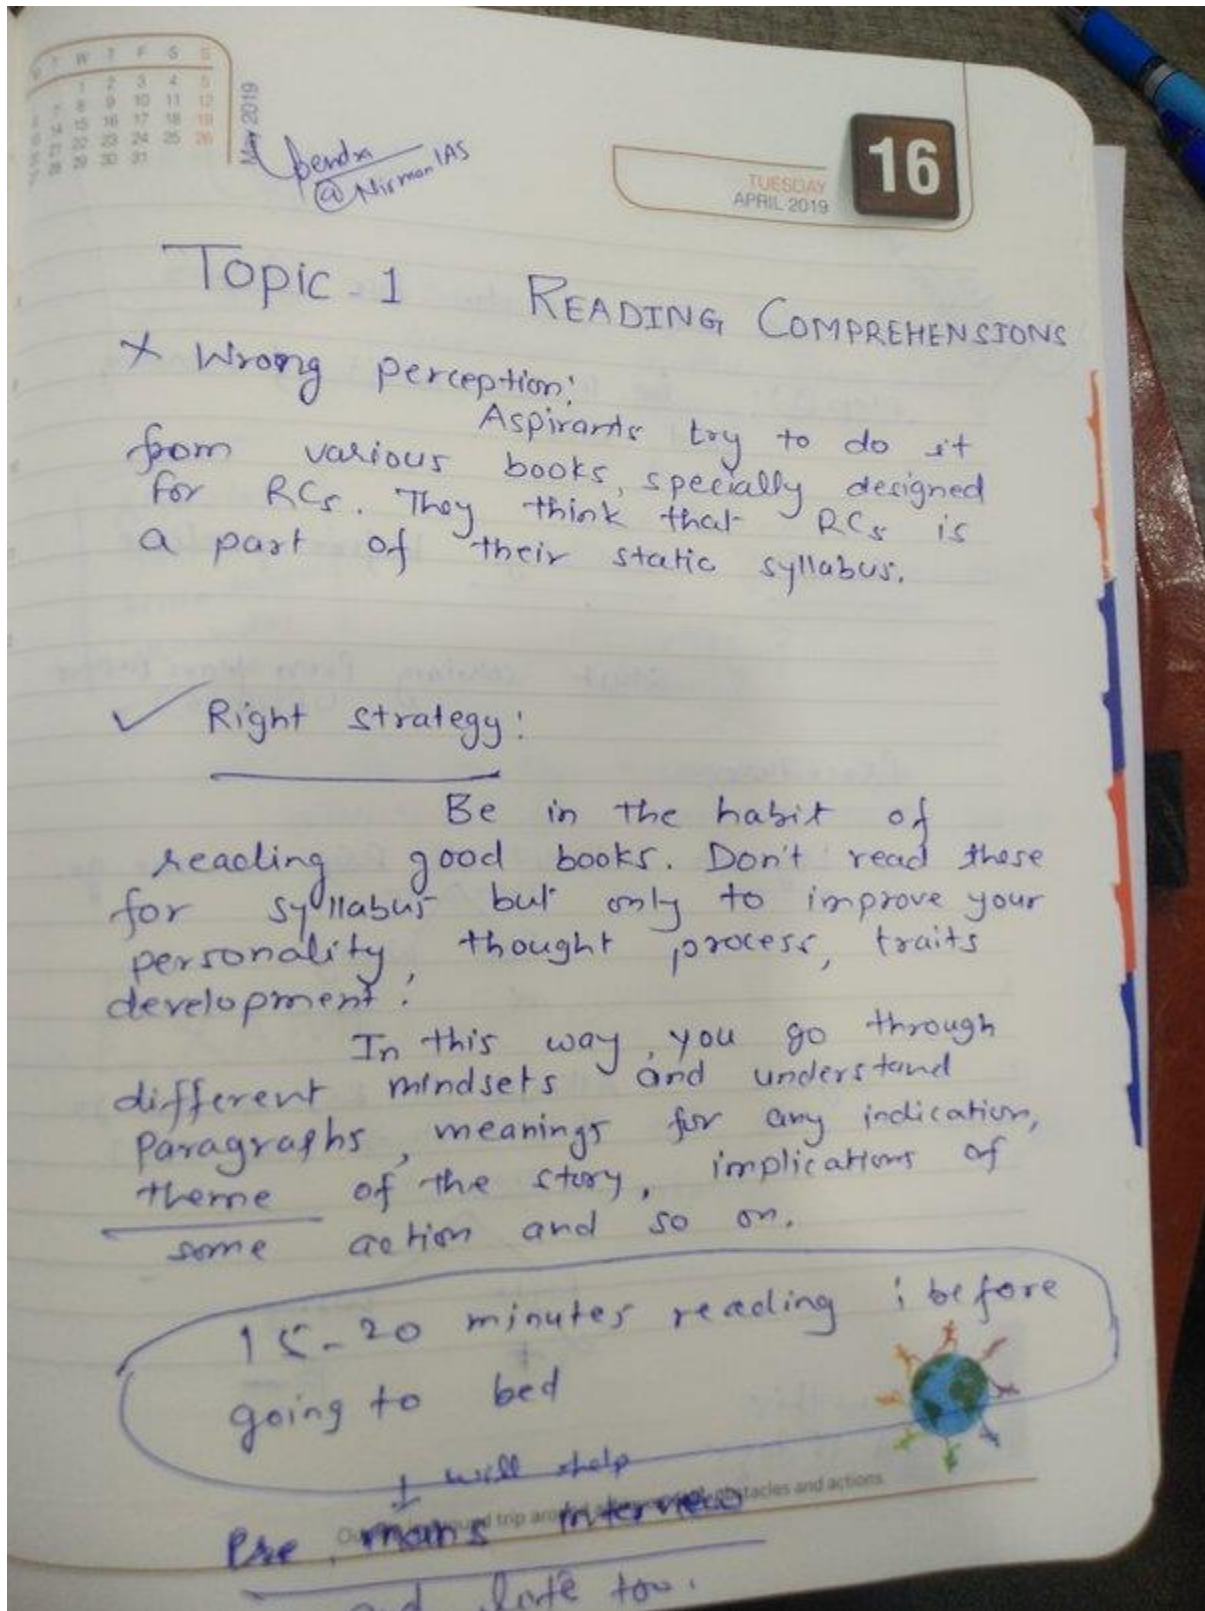 M T W T F S S
1 2 3 4 5
6 7 8 9 10 11 12
13 14 15 16 17 18 19
20 21 22 23 24 25 26
27 28 29 30 31
May 2019
Upendra
@Nirman IAS
TUESDAY
APRIL 2019
16
Topic-1 READING COMPREHENSIONS
x Wrong perception:
Aspirants try to do it
from various books, specially designed
for RCs. They think that RCs is
a part of their static syllabus.
✓ Right strategy:
Be in the habit of
reading good books. Don't read these
for syllabus but only to improve your
personality, thought process, traits
development.
In this way, you go through
different mindsets and understand
Paragraphs, meanings for any indication,
theme of the story, implications of
some action and so on.
15-20 minutes reading; before
going to bed
↓ will help
Our round trip around obstacles and actions
Pre, mains interview
and life too.